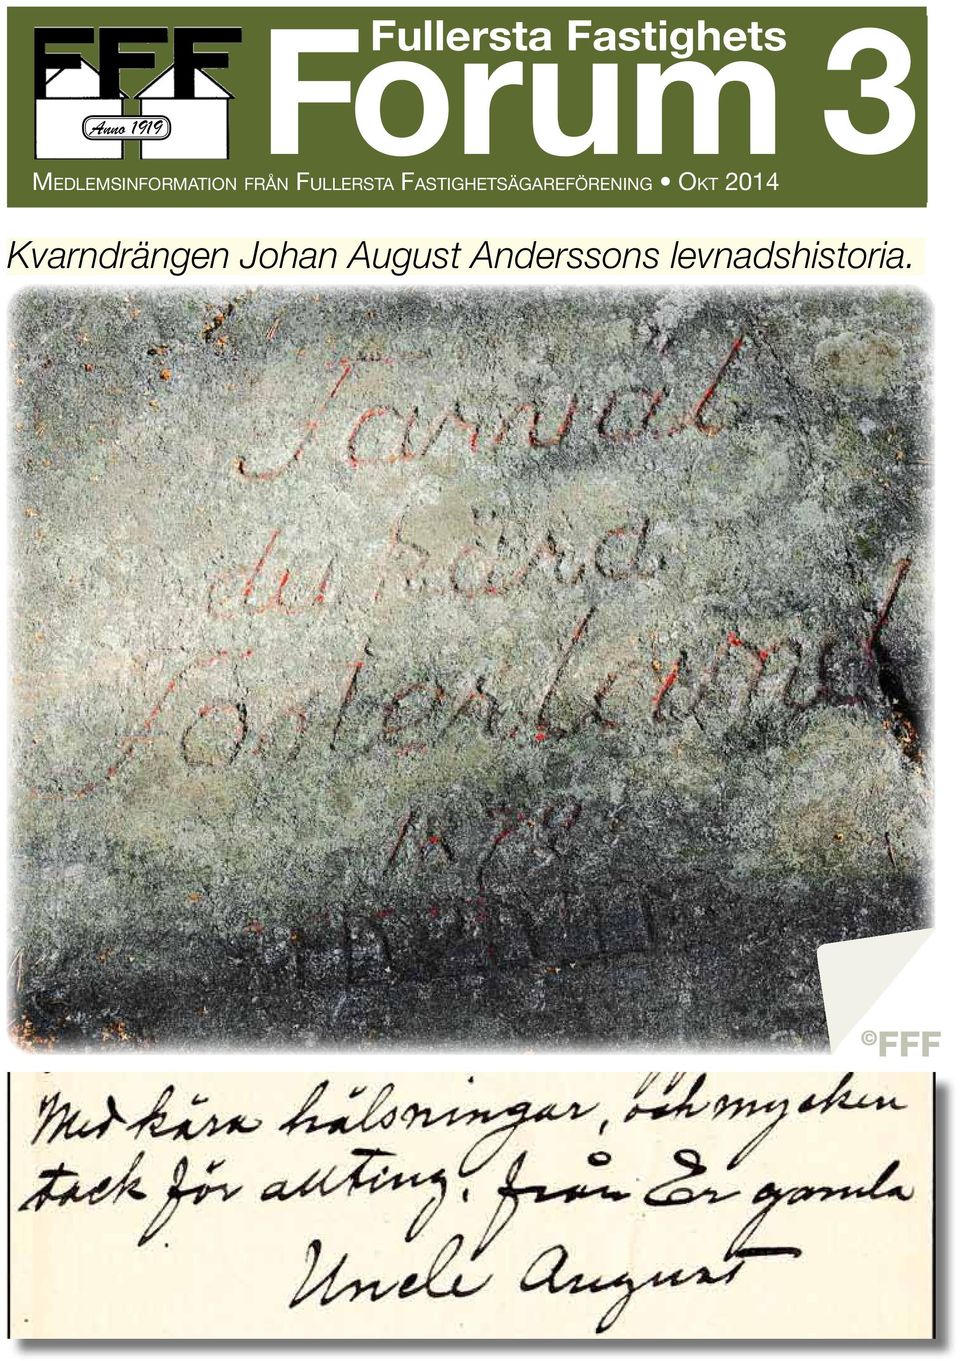 FFF
Anno 1919
Fullersta Fastighets
Forum 3
MEDLEMSINFORMATION FRÅN FULLERSTA FASTIGHETSÄGAREFÖRENING • OKT 2014
Kvarndrängen Johan August Anderssons levnadshistoria.
Farväl
du kära
Fosterland
1878
©FFF
Med kära hälsningar, och mycken
tack för allting, från Er gamla
Uncle August